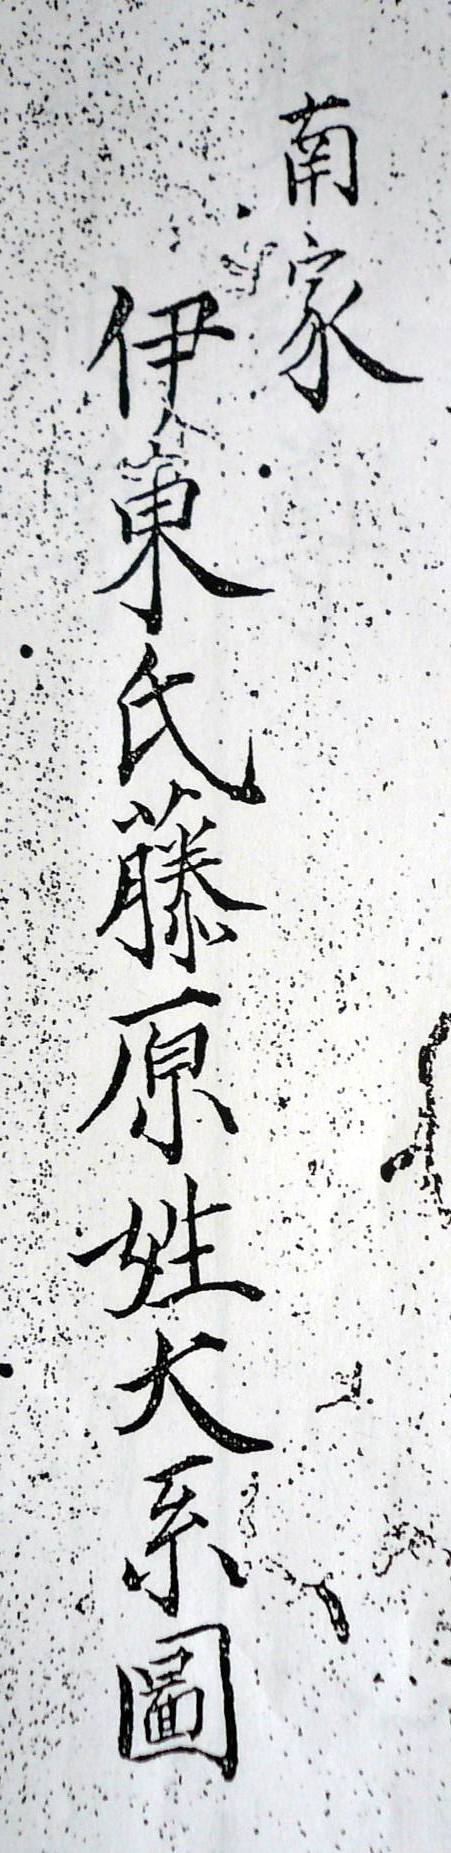 南家
伊東氏藤原姓大系圖